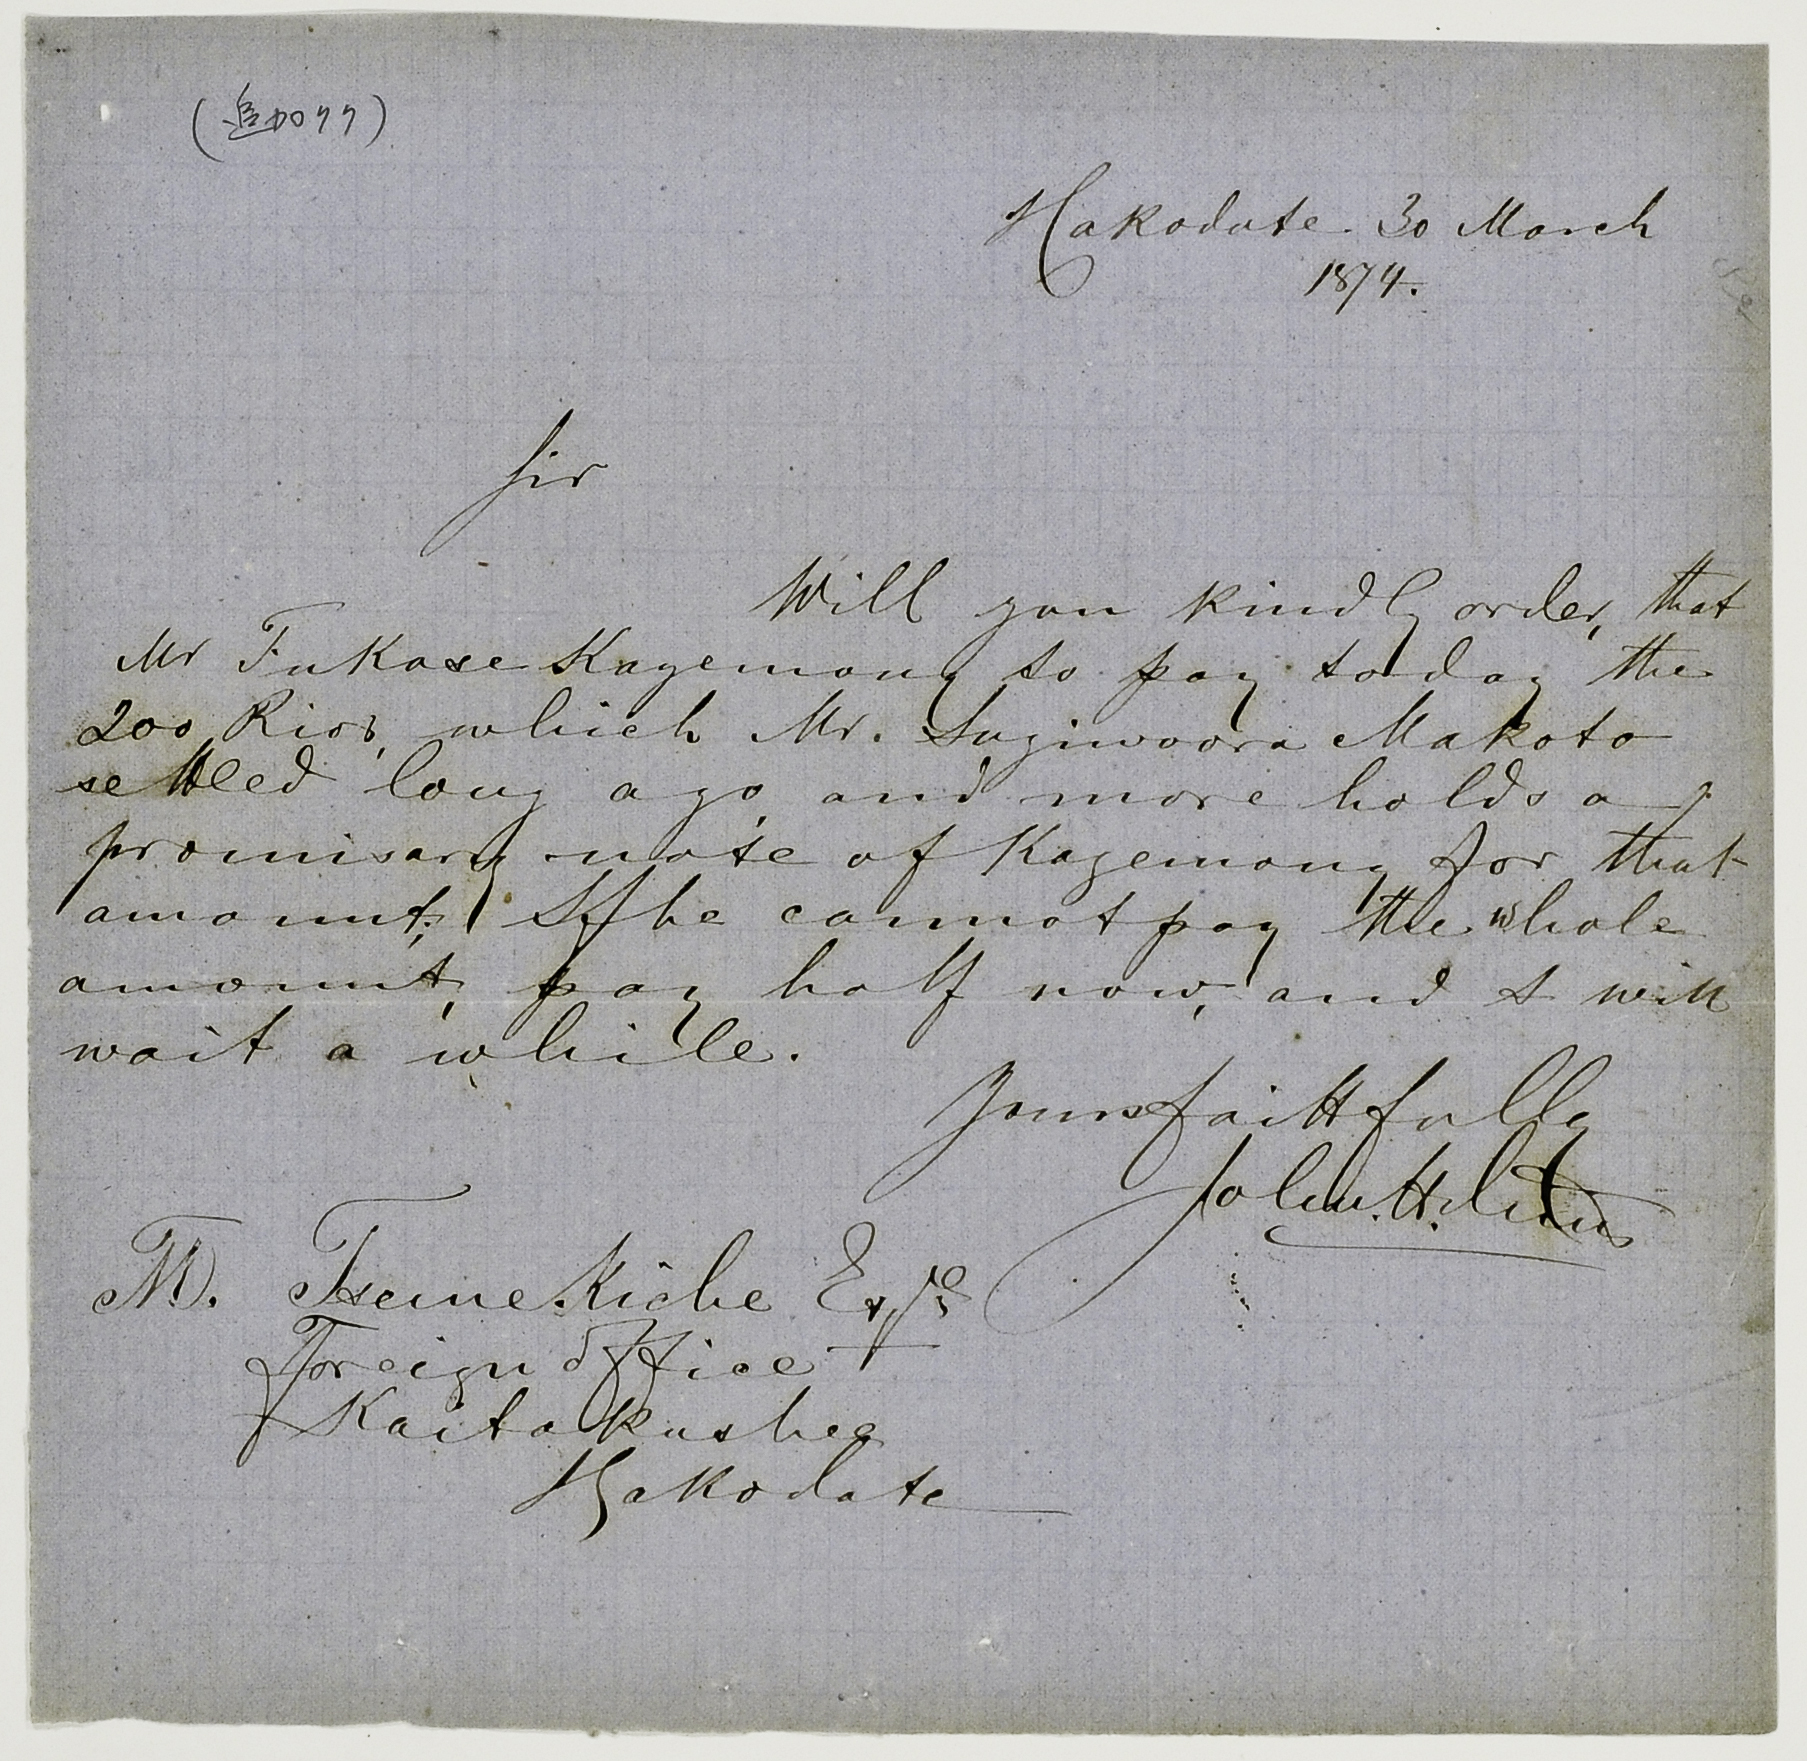 (追加77)
Hakodate. 30 March
1874.
Sir
Will you kindly order, that
Mr Fukase Kagemony to pay today the
200 Rios, which Mr. Sugiwoora Makoto
settled long ago, and more holds a
promisary note of Kagemony for that
amount; If he cannot pay the whole
amount, pay half now, and I will
wait a while.
Yours faithfully
John. H.
M. Tsune Kiche Esqre
Foreign Office
Kaitakushee
Hakodate